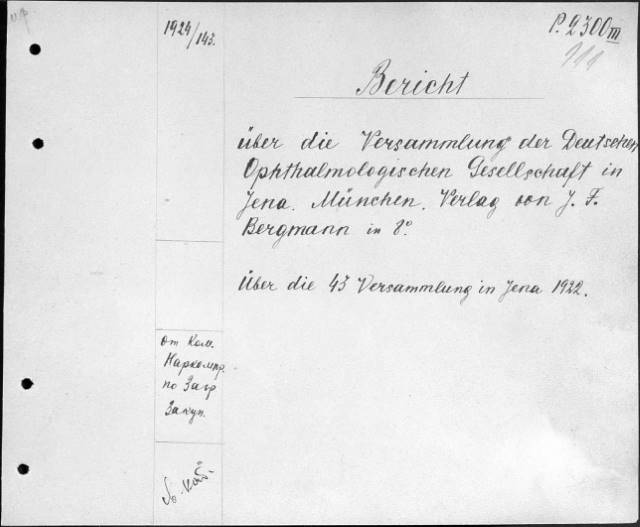 1924/143.
P. 2300 III
111
Bericht
über die Versammlung der Deutschen
Ophthalmologischen Gesellschaft in
Jena. München. Verlag von J. F.
Bergmann in 8°.
Über die 43 Versammlung in Jena 1922.
от Ком.
Наркомпр.
по Загр
Закуп.